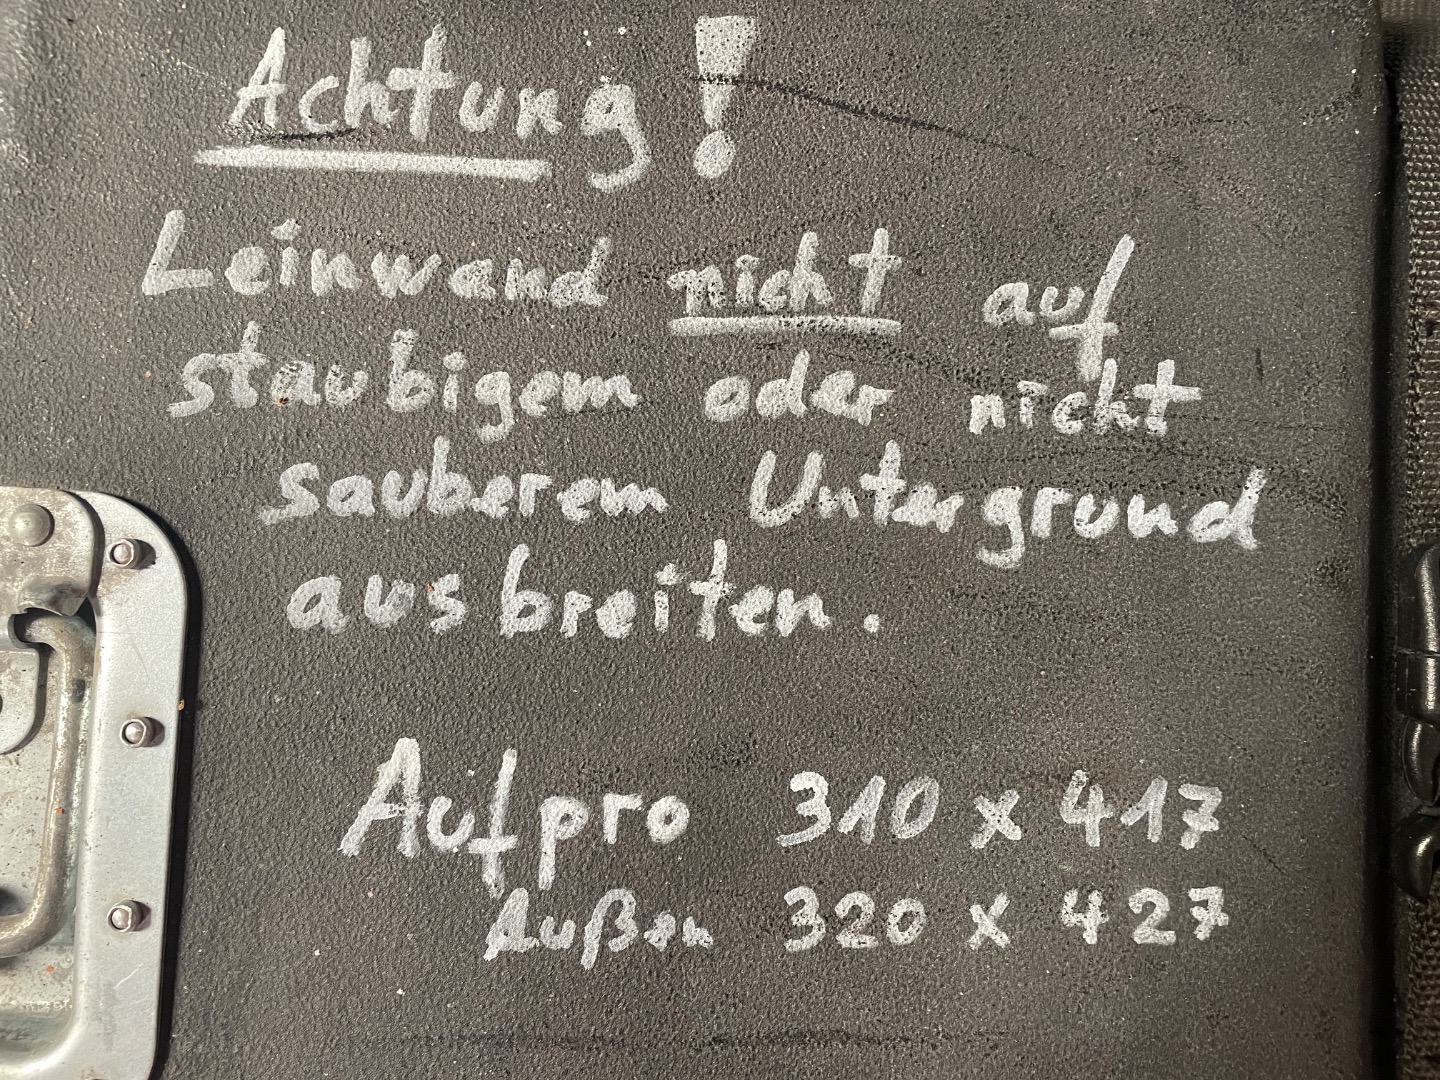 Achtung!
Leinwand nicht auf
staubigem oder nicht
sauberem Untergrund
ausbreiten.
Aufpro 310 x 417
Außen 320 x 427